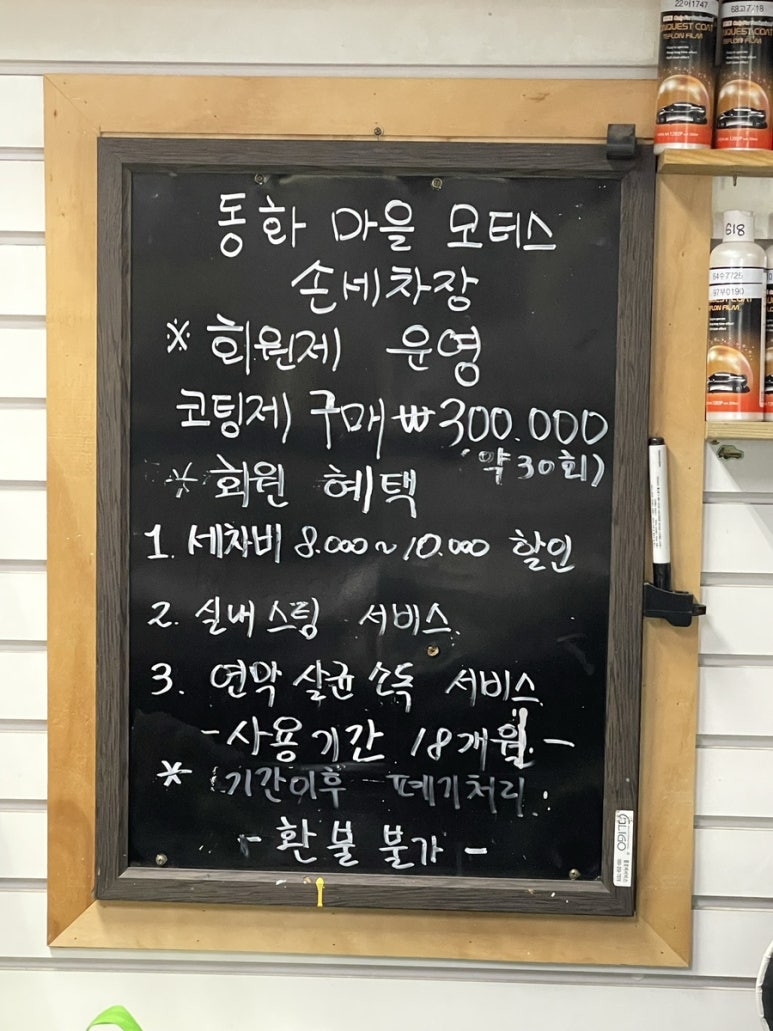 22어1747
68고7718
QUEST COAT
TEFLON FILM
CONQUEST COAT
TEFLON FILM
618
64우7725
97부0190
동화 마을 모터스
손세차장
※ 회원제 운영
코팅제 구매 ₩300.000
(약 30회)
* 회원 혜택
1. 세차비 8.000~10.000 할인
2. 실내 스팀 서비스.
3. 연막 살균 소독 서비스
- 사용기간 18개월. -
* 기간이후 폐기처리.
- 환불 불가 -